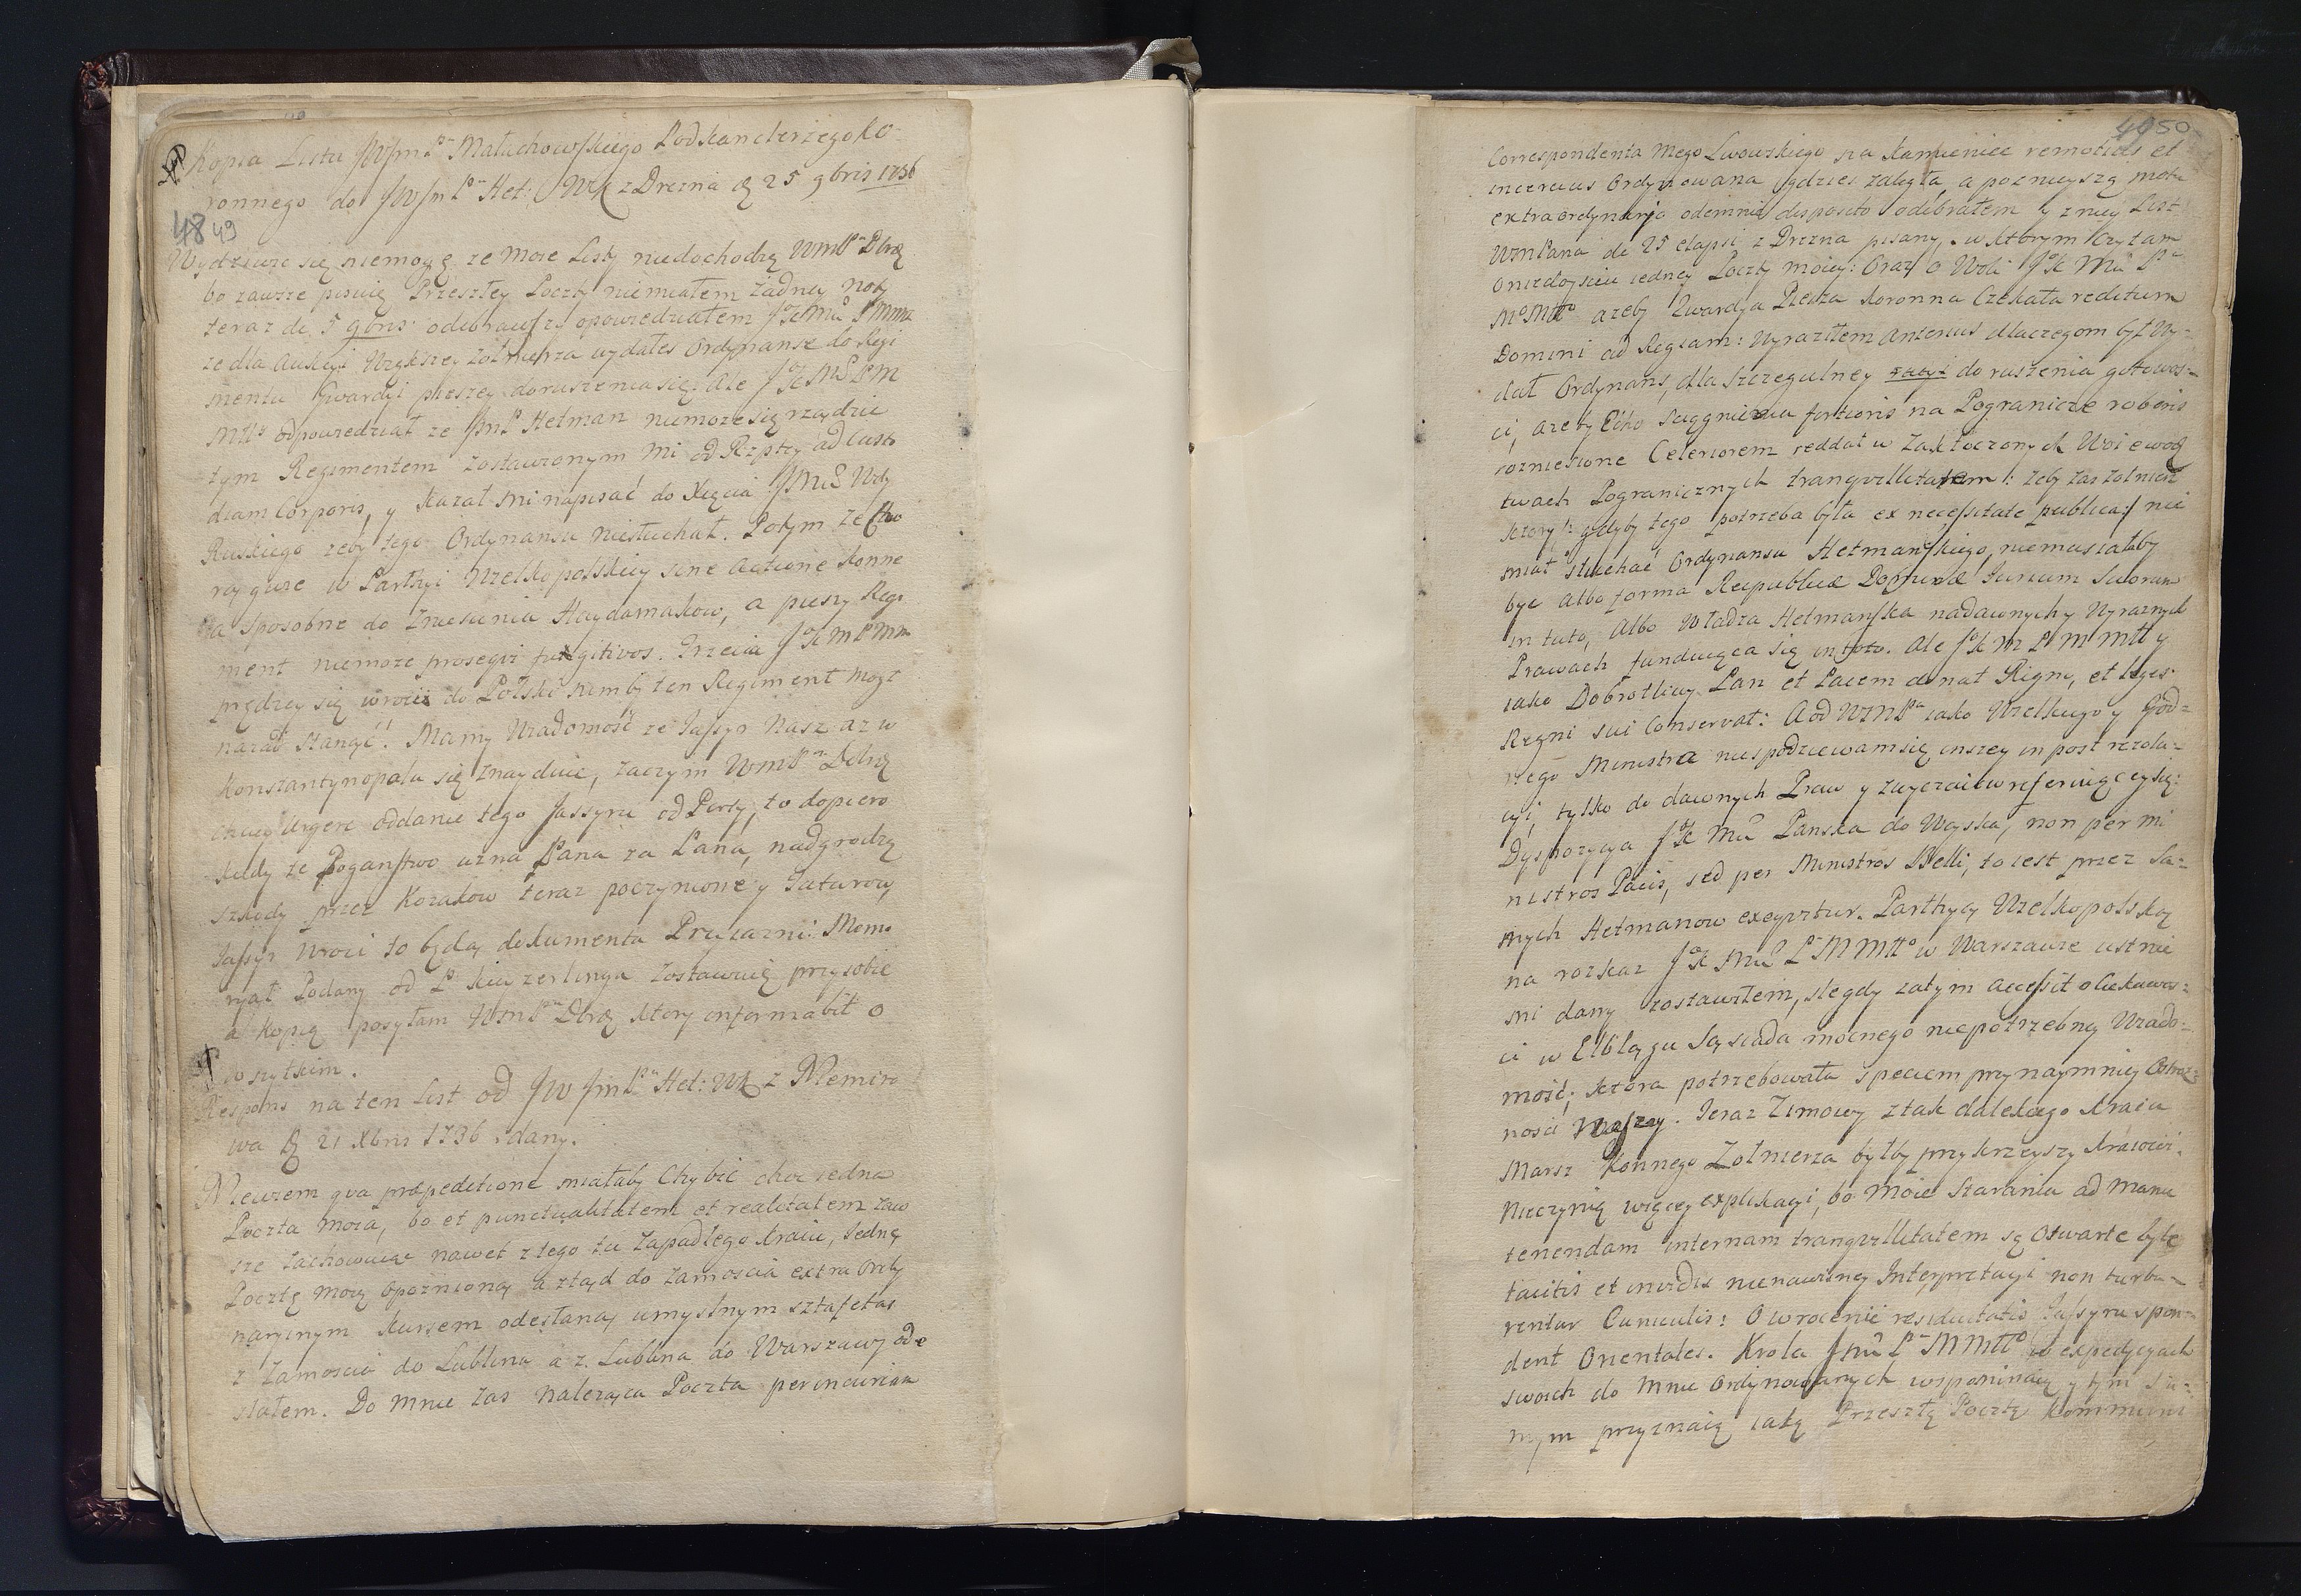 Kopia Listu JWJmP Małachowskiego Podkanclerzego Ko-
ronnego do JWJmP Het: WK z Drezna D 25 9bris 1736
48 49
Wydziwić się niemogę ze moie Listy niedochodzą WmP Dbrą
bo zawsze piszię Przeszłey Poczty niemiałem żadney noty
teraz de 5 9bris odebrawszy opowiedziałem JKMci PMmu
ze dla Aukcyi Większey Zołnierza wydałes Ordynanse do Regi
mentu Gwardyi pieszey do ruszenia się. Ale JKMśc PM
Mtt odpowiedział ze JmP Hetman niemoze się rządzić
tym Regimentem zostawionym mi od Rzptey ad Custo
diam Corporis, y Kazał mi napisać do Xięcia JMci Wdy
Ruskiego zeby tego Ordynansu niesłuchał. Potym ze Cho
rągwie w Partyi Wielkopolskiey sine Actione Konne
Są Sposobne do Zniesienia Haydamakow, a pieszy Regi
ment niemoze proseqvi fugitivos. Trzecia JKMPMm
prędzey się wroći do Polski nimby ten Regiment mogł
nazad Stanąć. Mamy Wiadomość ze Jassyr Nasz az w
Konstantynopolu się znayduie, zaczym WmP Dobrą
chciey Urgere oddanie tego Jassyru od Porty, to dopiero
kiedy te Pogaństwo uzna Pana za Pana, nadgrodzą
szkody przez Kozakow teraz poczynione y Tatarow
Jassyr wroci to będą dokumenta Przyiazni: Memo
ryał Podany od P Keyzerlinga zostawuię przy sobie
a kopię posyłam WmP Dbrą Ktory informabit o
wszytkim.
Respons na ten List od JWJmP Het: WK z Niemiro
wa D 21 Xbris 1736 dany.
Niewiem qva praepeditione miałaby Chybić choć iedna
Poczta moia, bo et punctualitatem et realitatem zaw
sze zachowuiąc nawet z tego tu zapadłego Kraiu, Iedną
Pocztę moię opoznioną a ztąd do Zamoscia extra Ordy
naryinym Kursem odesłaną umyslnym sztafetas
z Zamoscia do Lublina a z Lublina do Warszawy ode
słałem. Do mnie zas nalezaca Poczta per incuriam
49 50
Correspondenta Mego Lwowskiego na Kamieniec remotius et
incertius Ordynowana gdzies zaległa, a poznieyszą motu
extraordynario odemnie disposito odebrałem y z niey List
WmPana de 25 elapsi z Drezna pisany, w ktorym Czytam
oniedoyściu iedney Poczty moiey: Oraz o Woli JK Mci P
MMtt azeby Gwardya Piesza Koronna Czekała reditum
Domini ad Regiam: Wyraziłem Anterius dlaczegom był Wy-
dał Ordynans, dla Szczegulney do ruszenia gotowos-
ci, azeby Echo Sciągnienia fortioris na Pogranicze roboris
rozniesione Celeriorem reddat w Zakłoconych Woiewodz
twach Pogranicznych tranqvillitatem: zeby zas zołnierz
ktory /: gdyby tego potrzeba była ex necessitate publica :/ nie
miał słuchać Ordynansu Hetmańskiego, niemusiałaby
być Albo forma Reipublicae Jurium Suorum
in tuto, Albo Władza Hetmanska nadawnych y Wyraznych
Prawach funduiąca się in foro. Ale JK M P M Mtt y
iako Dobrotliwy Pan et Pacem donat Regno, et leges
Regni sui Conservat: A od WmP iako Wielkiego y God-
nego Ministra niespodziewam się inszey in post rezolu-
cyi, tylko do dawnych Praw y zwyczaiow referuiącey się:
Dyspozycya JK Mci Panska do Woyska, non per Mi
nistros Pacis, sed per Ministros Belli, to iest przez Sa-
mych Hetmanow exeqvitur. Partyey Wielkopolskiey
na rozkaz JK Mci P MMtt w Warszawie ustnie
mi dany zostawiłem, ale gdy zatym accessit o Ciekawos-
ci w Elblągu Sąsiada mocnego niepotrzebney Wiado-
mość; ktora potrzebowała speciem przynaymniey Ostroz-
nosci Naszey. Teraz Zimowy z tak dalekiego Kraiu
Marsz Konnego Zołnierza byłby przykrzeyszy Kraiowi.
Nieczynię więcey explikacyi, bo moie Starania ad manu
tenendam internam tranqvillitatem są otwarte byle
tacitis et invidis nienawisney Interpretacyi non turba-
rentur Cuniculis: O wrocenie residuitatis Jassyru spon-
dent Orientales. Krola Jmci P MMtt w expedycyach
swoich do Mnie Ordynowanych wspominaią y tym Sa-
mym przyznaią iaką Przeszłą Pocztą kommuni